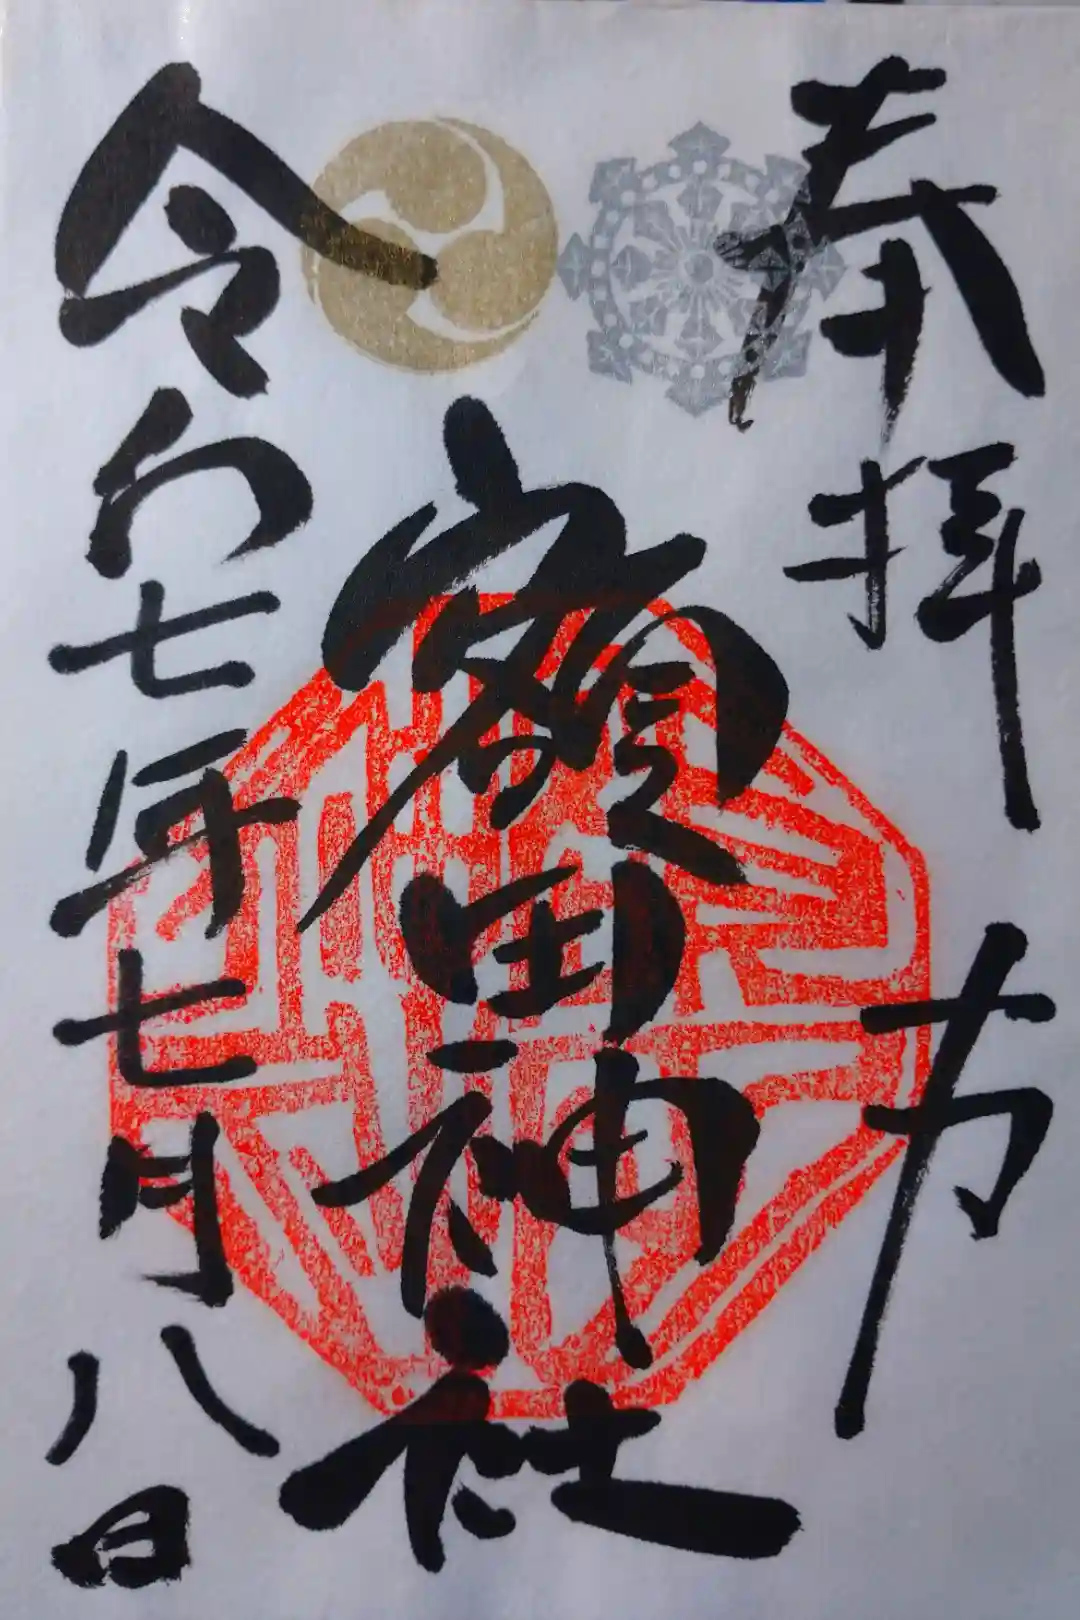 奉拝 方
額田神社
令和七年七月八日